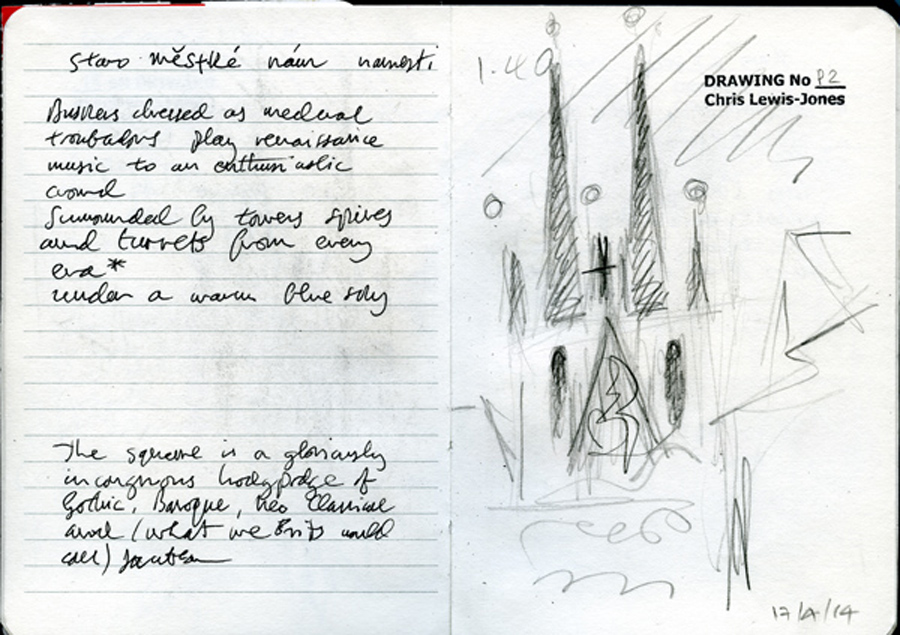 staro městké nám namesti
Buskers dressed as medieval
troubadors play renaissance
music to an enthusiastic
crowd
Surrounded by towers spires
and turrets from every
era*
under a warm blue sky
The square is a gloriously
incongruous hodgepodge of
Gothic, Baroque, Neo Classical
and (what we Brits would
call) Jacobean
1.40
DRAWING No P2
Chris Lewis-Jones
17/4/14